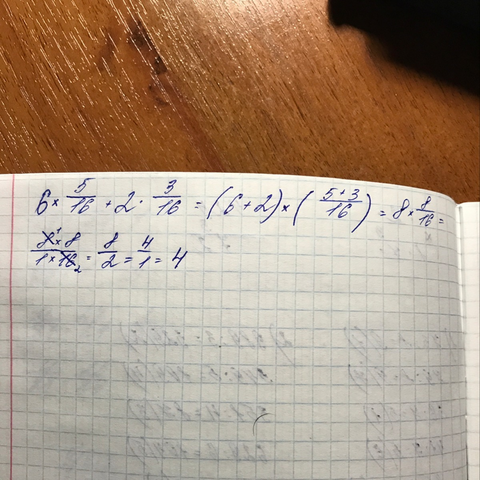 6 × 5/16 + 2 · 3/16 = (6+2) × (5+3/16) = 8 × 8/16 =
8¹ × 8/1 × 16₂ = 8/2 = 4/1 = 4